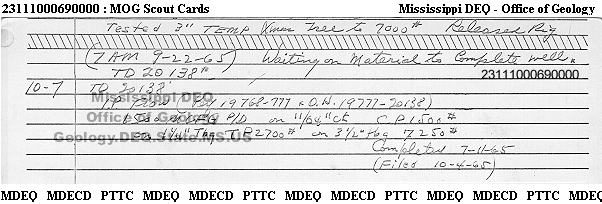 23111000690000 : MOG Scout Cards Mississippi DEQ - Office of Geology
Tested 3" TEMP Xmas Tree to 7000# Released Rig
(7 AM 9-22-65) Waiting on Material to Complete well.
TD 20138' 23111000690000
10-7 TD 20138'
Mississippi DEQ
(19768-777 & O.H. 19777-20138)
Office of Geology
P/D on "/64" ck CP 1500#
Geology.DEQ.State.MS.US
on Tbg TP 2700# on 3 1/2" tbg 7250#
Completed 7-11-65
(Filed 10-4-65)
MDEQ MDECD PTTC MDEQ MDECD PTTC MDEQ MDECD PTTC MDEQ MDECD PTTC MDEQ